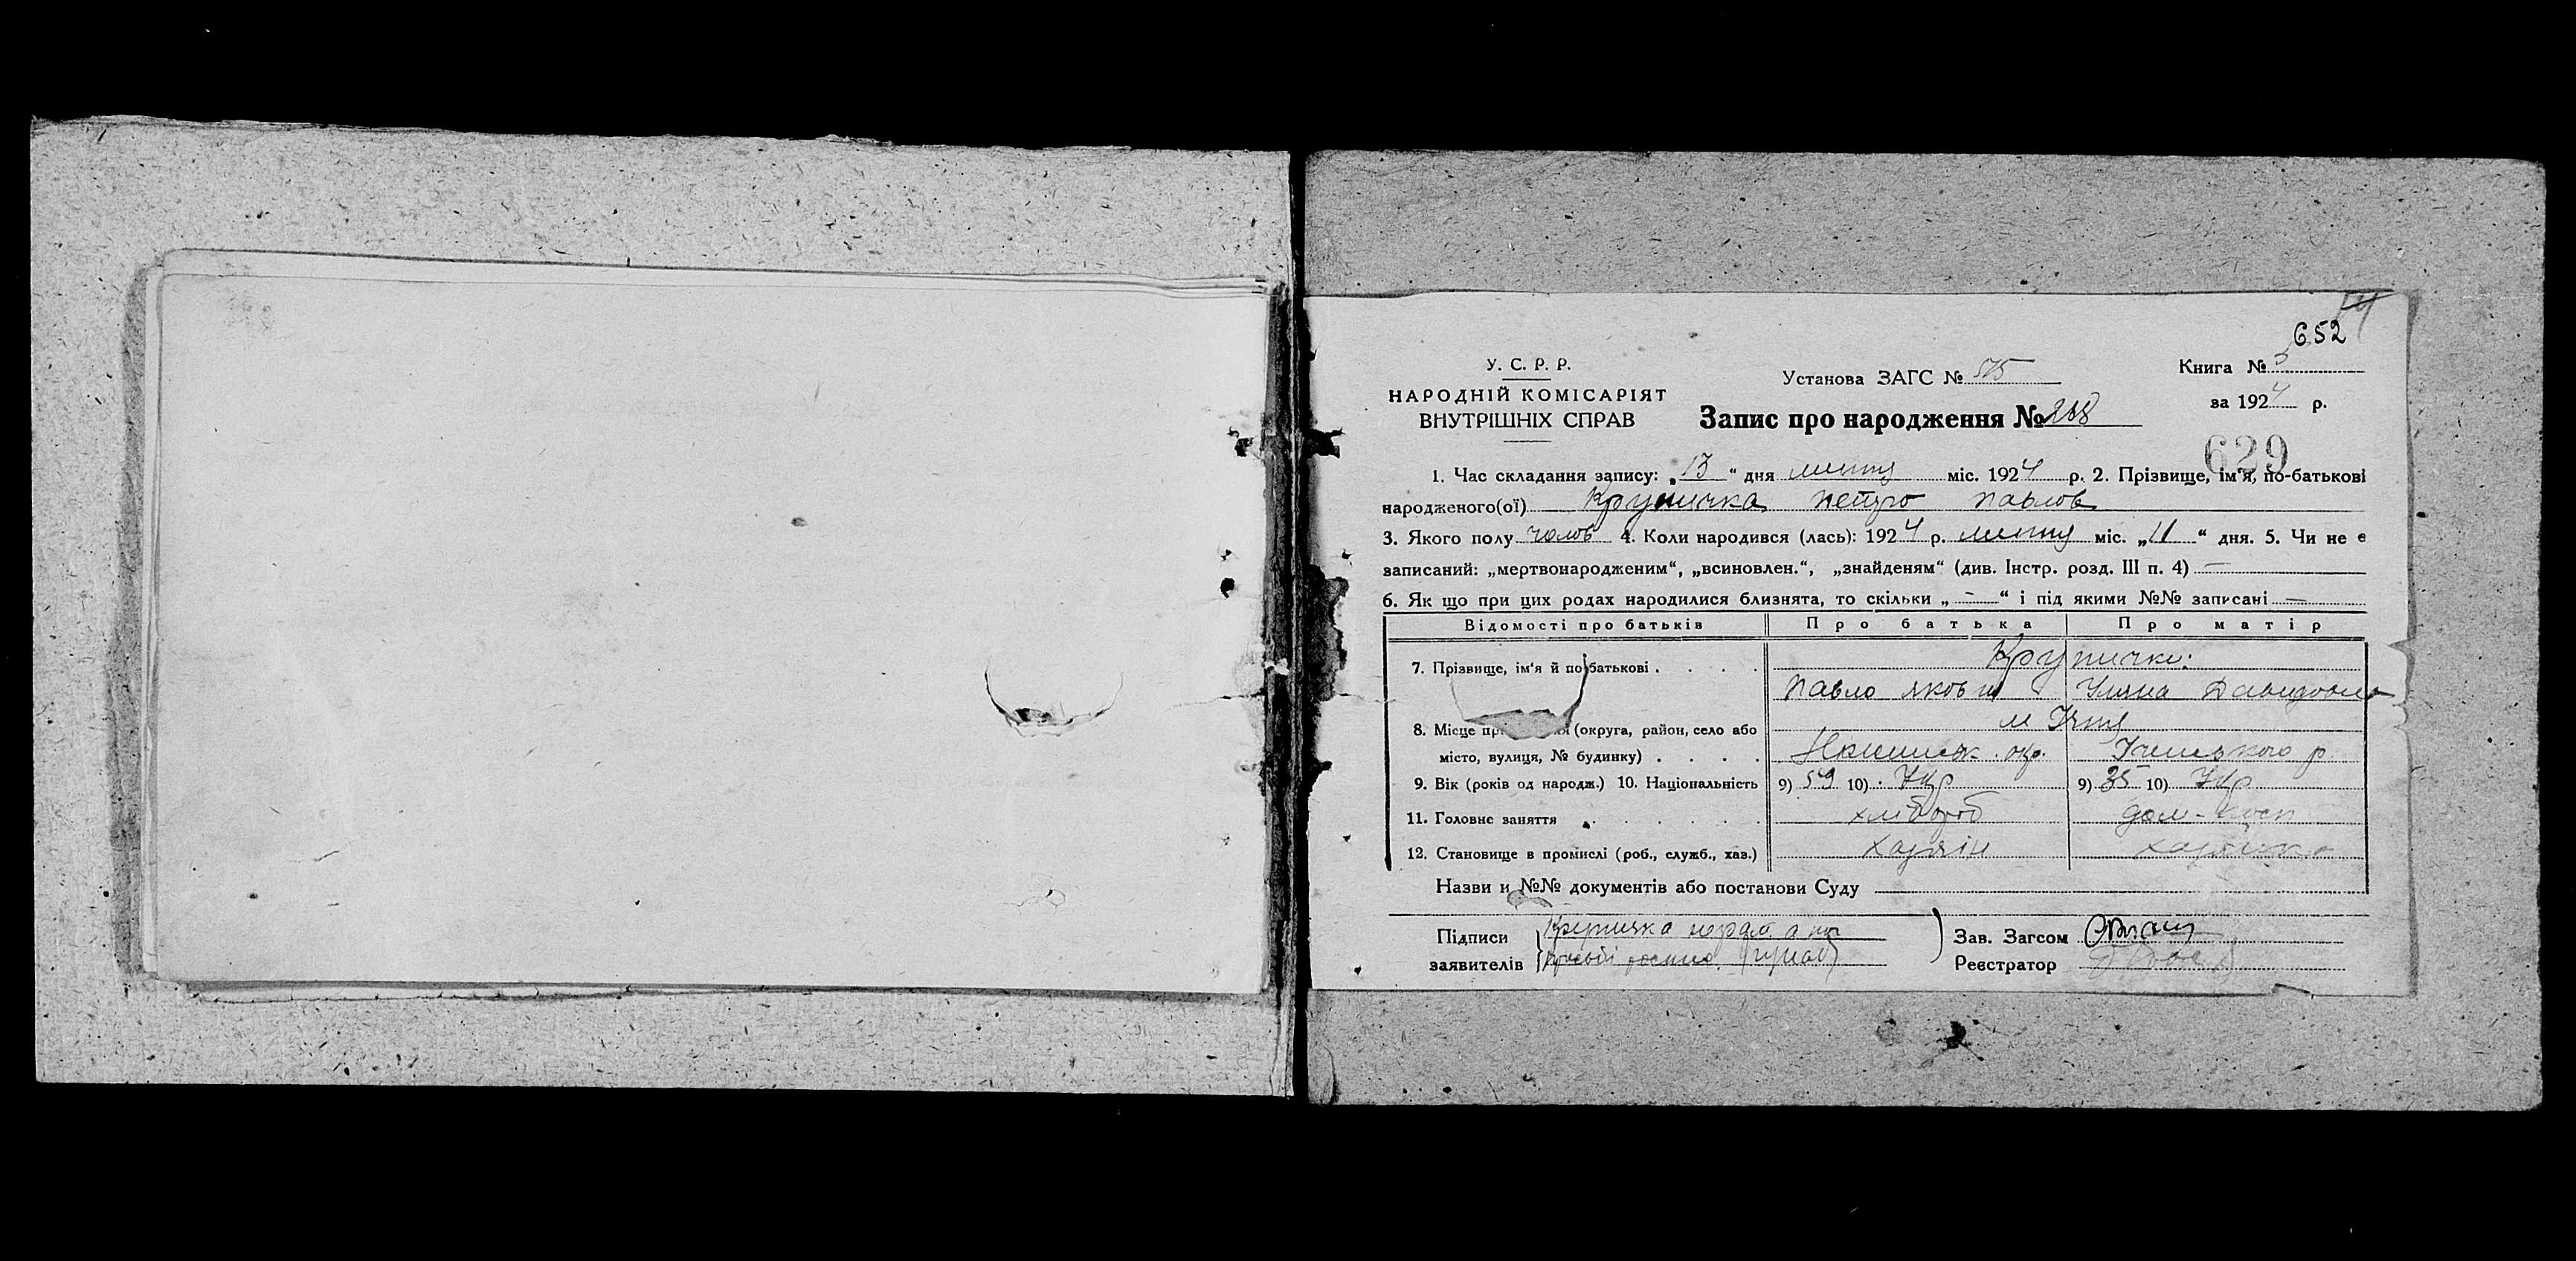 652
У. С. Р. Р.
НАРОДНІЙ КОМІСАРІЯТ
ВНУТРІШНІХ СПРАВ
Установа ЗАГС № 515
Книга № 5
за 1924 р.
Запис про народження № 268
629
1. Час складання запису: „13“ дня лютня міс. 1924 р. 2. Прізвище, ім'я, по-батькові
народженого(ої) Крупичка Петро Павлов
3. Якого полу чолов 4. Коли народився (лась): 1924 р. лютня міс. „11“ дня. 5. Чи не є
записаний: „мертвонародженим“, „всиновлен.“, „знайденям“ (див. Інстр. розд. III п. 4) —
6. Як що при цих родах народилися близнята, то скільки „ - “ і під якими №№ записані —
Відомості про батьків Про батька Про матір
7. Прізвище, ім'я й по батькові . . . . Крупички:
Павло Яков Уляна Давидовна
м Ічня
8. Місце (округа, район, село або
місто, вулиця, № будинку) . . . . окр. р
9. Вік (років од народж.) 10. Національність 9) 59 10) Укр 9) 35 10) Укр
11. Головне заняття . . . . . хлібороб дом-госп
12. Становище в промислі (роб., служб., хаз.) хазяін хазяйка
Назви и №№ документів або постанови Суду
Підписи Крупичка а по
заявителів
Зав. Загсом
Реєстратор